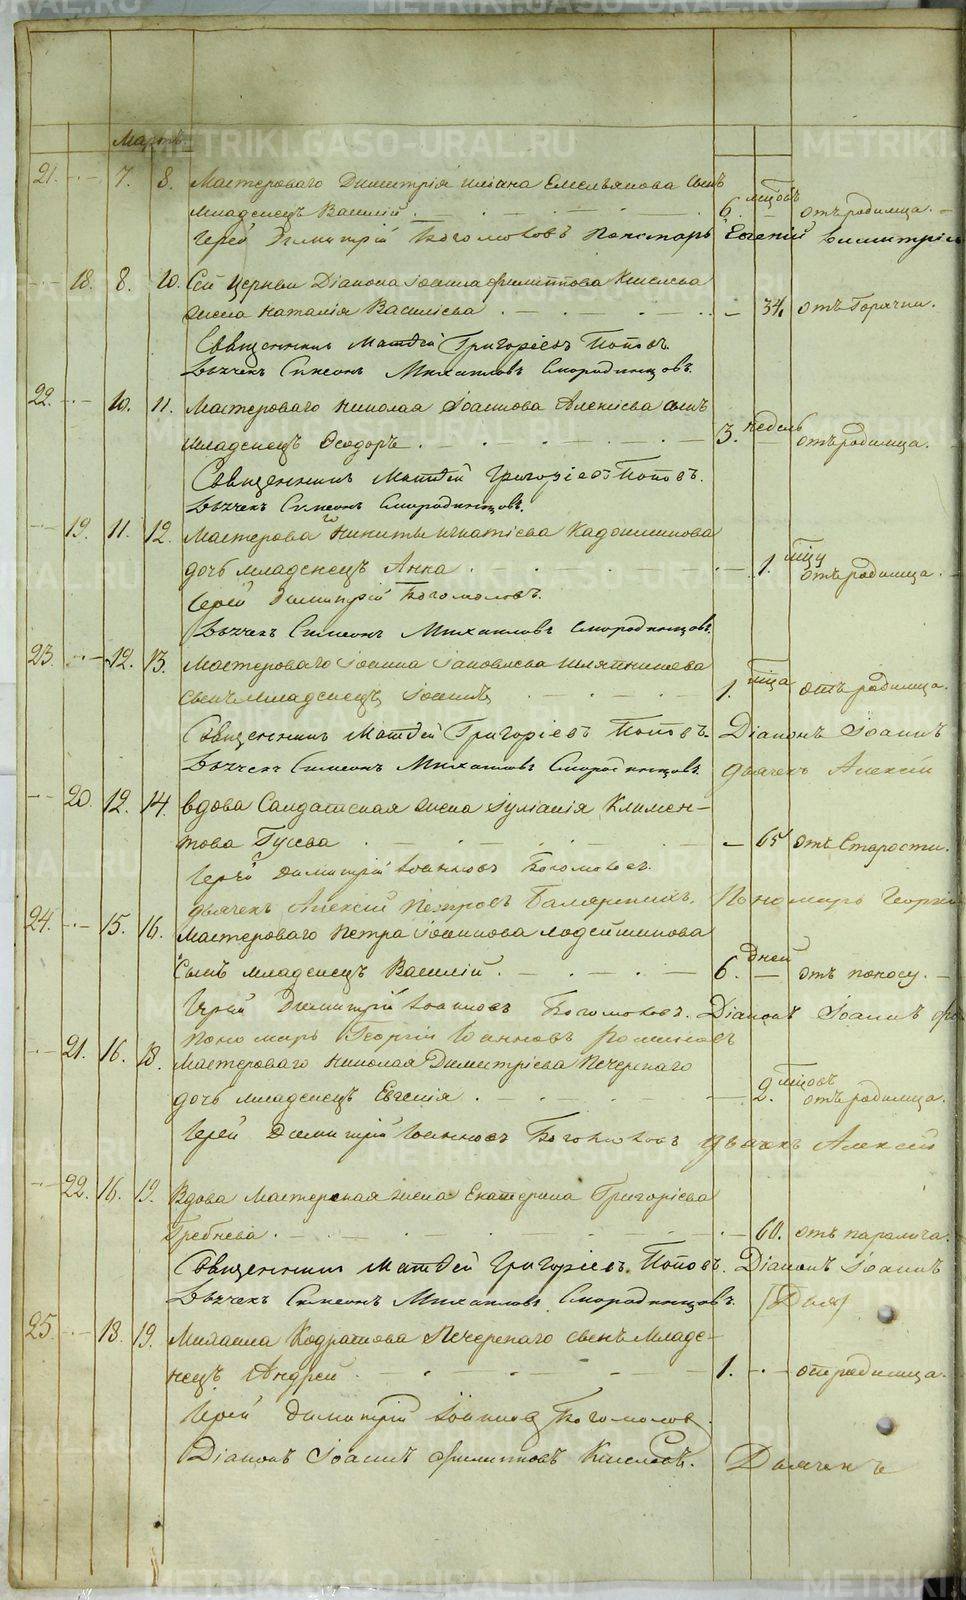 Мартъ.
21. 7. 8. Мастероваго Димитрія Емельянова сынъ
младенецъ Василій 6. мцовъ отъ родимца.
Іерей Димитрій Богомоловъ Пономарь
18. 8. 10. Сей церкви Діакона Іоанна Филиппова Киселева
жена Наталія Василіева 34. отъ Горячки.
Священникъ Матѳей Григоріевъ Поповъ
Дьячекъ Симеонъ Михаиловъ Смородинцовъ.
22. 10. 11. Мастероваго Николая Іоаннова Алексіева сынъ
младенецъ Ѳеодоръ 3. недель отъ родимца.
Священникъ Матѳей Григоріевъ Поповъ.
Дьячекъ Симеонъ Смородинцовъ.
19. 11. 12. Мастероваго Никиты Игнатіева
дочь младенецъ Анна 1. мцу отъ родимца.
Іерей Димитрій Богомоловъ.
Дьячекъ Симеонъ Михаиловъ Смородинцовъ.
23. 12. 13. Мастероваго Іоанна Іаковлева Шляпникова
сынъ младенецъ Іоаннъ 1. мца отъ родимца.
Священникъ Матѳей Григоріевъ Поповъ. Діаконъ Іоаннъ
Дьячекъ Симеонъ Михаиловъ Смородинцовъ. Дьячекъ Алексій
20. 12. 14. Вдова Салдатская жена Іуліанія Климен-
това Гусева 65 отъ Старости.
Іерей Димитрій Іоанновъ Богомоловъ.
Дьячекъ Алексій Петровъ Пономарь Георгій
24. 15. 16. Мастероваго Петра Іоаннова Лодейщикова
сынъ младенецъ Василій 6. дней отъ поносу.
Іерей Димитрій Іоанновъ Богомоловъ. Діаконъ Іоаннъ
Пономарь Георгій Іоанновъ
21. 16. 18. Мастероваго Николая Димитріева Печерскаго
дочь младенецъ Евгенія 2. мцовъ отъ родимца.
Іерей Димитрій Іоанновъ Богомоловъ Дьячекъ Алексій
22. 16. 19. Вдова Мастерская жена Екатерина Григоріева
Гребнева 60. отъ паралича.
Священникъ Матѳей Григоріевъ Поповъ. Діаконъ Іоаннъ
Дьячекъ Симеонъ Михаиловъ Смородинцовъ.
25. 18. 19. Михаила Кодратова Печерскаго сынъ младе-
нецъ Андрей 1. от родимца.
Іерей Димитрій Іоанновъ Богомоловъ.
Діаконъ Іоаннъ Филипповъ Киселевъ. Дьячекъ
METRIKI.GASO-URAL.RU